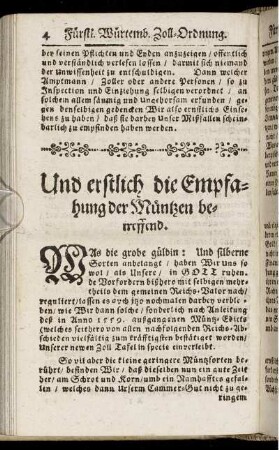 4 Fürstl. Würtemb. Zoll-Ordnung.
ber seinen Pflichten und Eyden anzuzeigen / offentlich
und verständlich verlesen lossen / darmit sich niemand
der unwissenheit zu entschuldigen. Dann welcher
Amptmann / Zoller oder andere Personen / so zu
Inspection und Einziehung selbigen verordnet / an
solchen allem säumig und Ungehorsam erfunden / ge-
gen denselbigen gedencken Wir also ernstliche Einse-
hens zu haben / daß sie darbey Unser Mißfallen schein-
barlich zu empfinden haben werden.
Und erstlich die Empfa-
hung der Müntzen be-
treffend.
WAs die grobe güldin: Und silberne
Sorten anbelangt / haben Wir uns so
wol / als Unsere / in GOTT ruhen-
de Vorfordern bißhero mit selbigen mehr-
theils dem gemeinen Reichs-Valor nach /
reguliert / lossen es auch itzo nochmalen darbey verblei-
ben, wie Wir dann solche / sonderlich nach Anleitung
deß in Anno 1559. außgangenen Müntz-Edicts
(welches seithero von allen nachfolgenden Reichs-Ab-
schieden vielfältig zum kräfftigsten bestättiget worden /
Unserer newen Zoll Tafel in specie einverleibt.
So vil aber die kleine geringere Müntzsorten be-
rührt / befinden Wir / daß dieselben nun ein gute Zeit
her / am Schrot und Korn / umb ein Namhafftes gefal-
len / welches dann Unserm Cammer-Gut nicht zu ge-
ringem